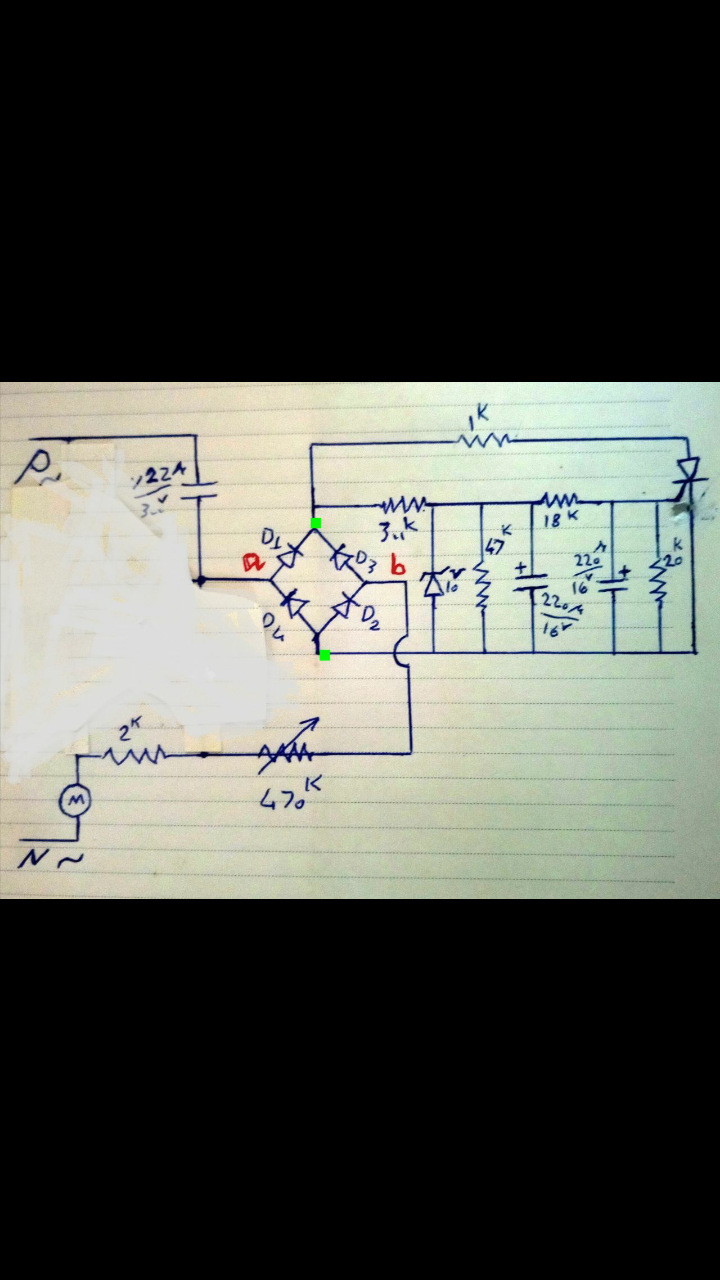 P~
1K
,22M
3..v
D1
D3
3..K
18K
47K
a
b
10v
220M
16v
20K
220M
16v
D4
D2
2K
470K
M
N ~